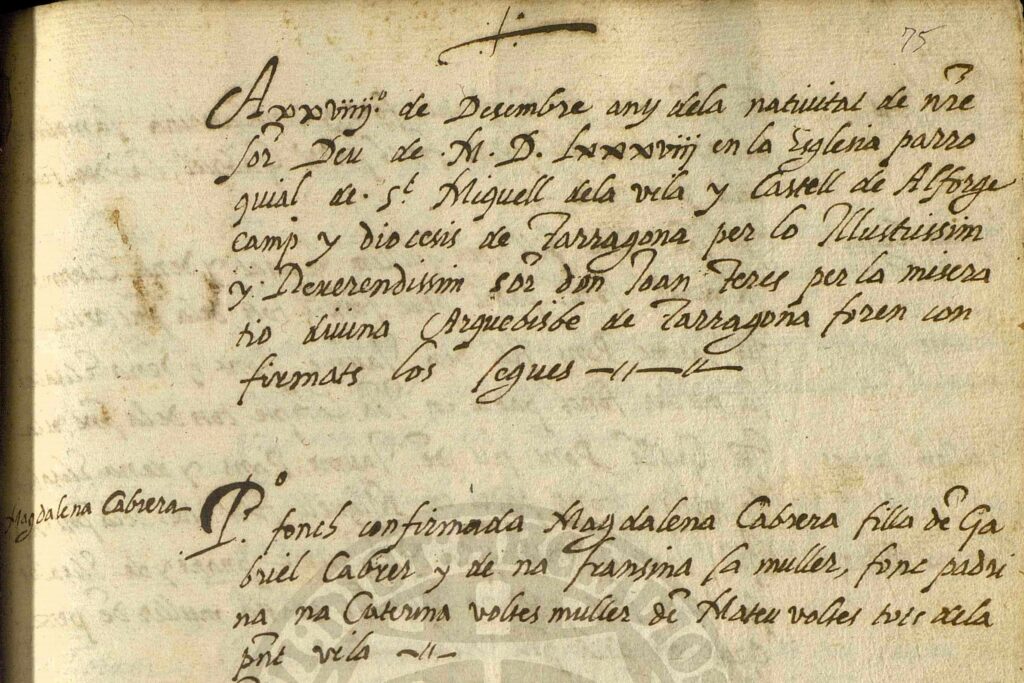 75
A xxviiij.º de Desembre any dela nativitat de nre
sor Deu de .M.D. Lxxxviij en la Esglesia parro
quial de. St. Miquell dela vila y Castell de Alforge
camp y diocesis de Tarragona per lo Illustrissim
y Reverendissim sor don Joan Teres per la misera
tio divina Arquebisbe de Tarragona foren con
firmats los segues
Magdalena Cabrera
P.º fonch confirmada Magdalena Cabrera filla de Ga
briel Cabrer y de na fransina sa muller, fonc padri
na na Caterina voltes muller de Mateu voltes tots dela
pnt vila